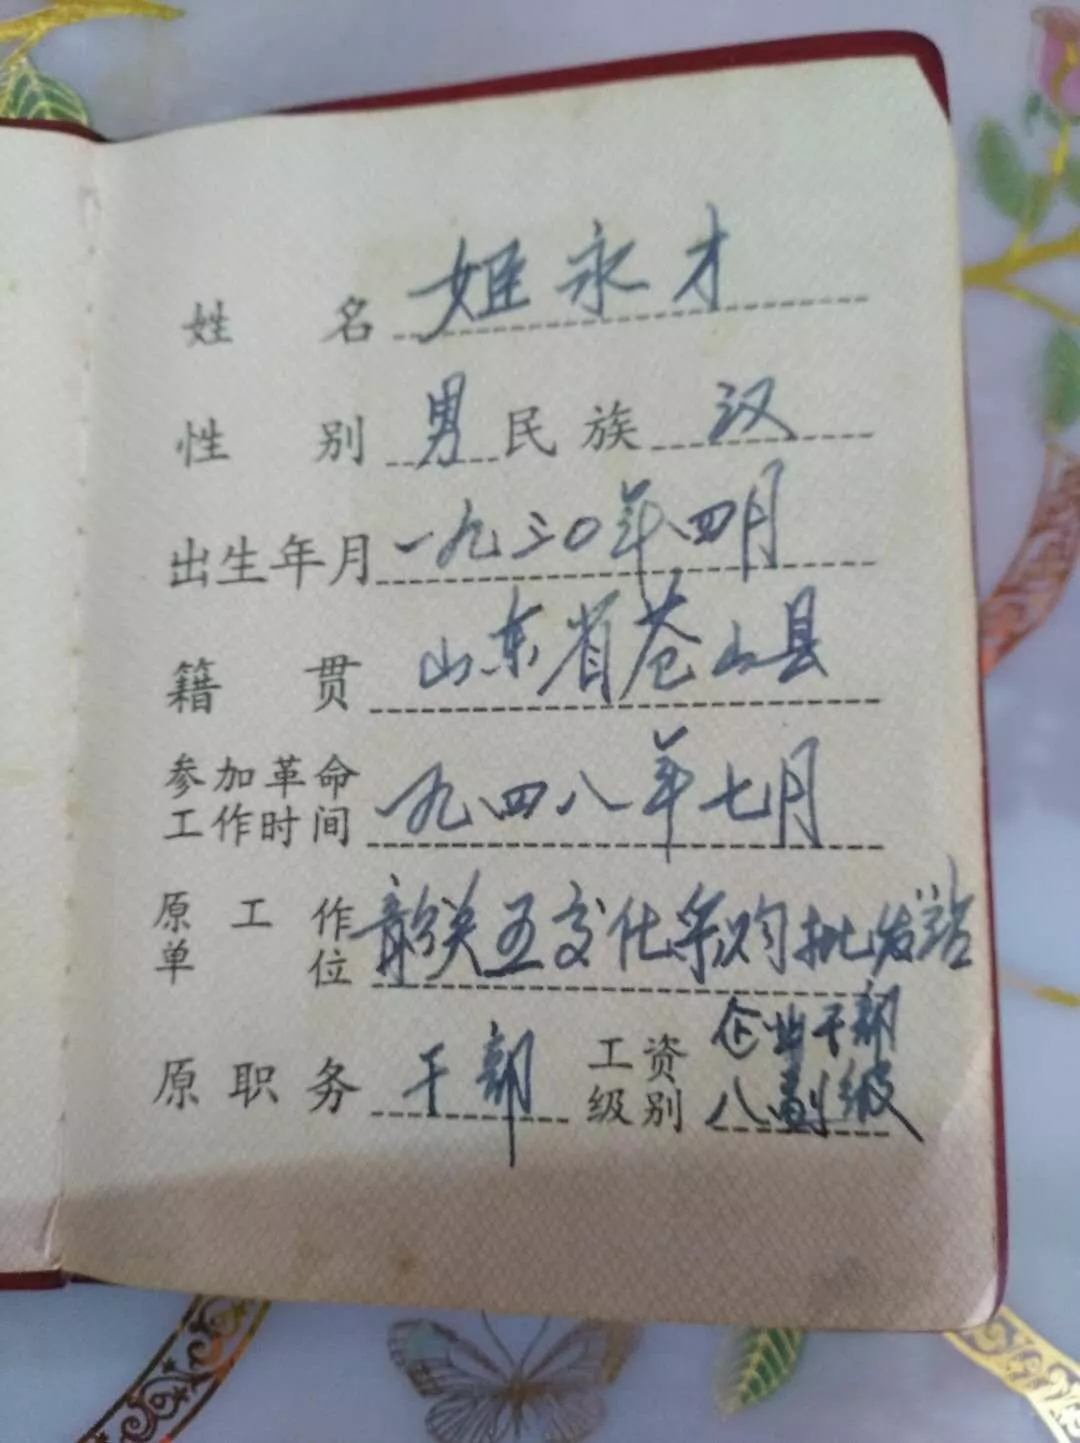 姓名 姬永才
性别 男 民族 汉
出生年月 一九三〇年四月
籍贯 山东省苍山县
参加革命
工作时间 一九四八年七月
原工作
单位 韶关五交化采购批发站
原职务 干部 工资
级别 企业干部
八副级